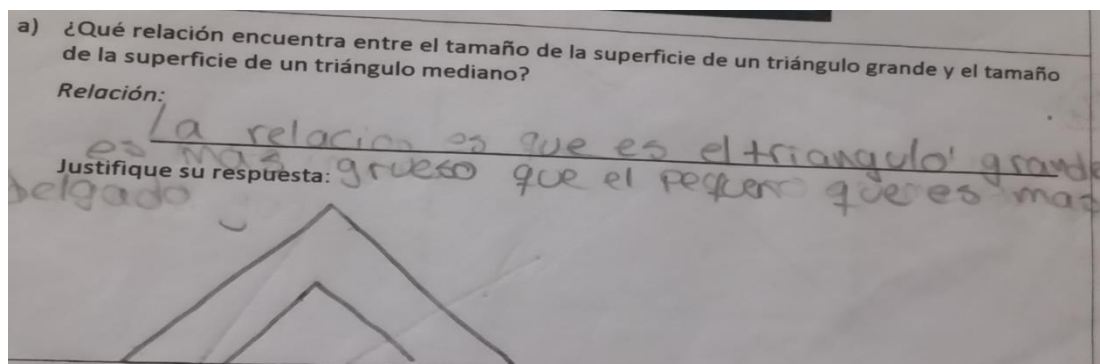 a) ¿Qué relación encuentra entre el tamaño de la superficie de un triángulo grande y el tamaño
de la superficie de un triángulo mediano?
Relación:
La relacion es que es el triangulo grande
es mas grueso que el pequeno que es mas
Justifique su respuesta:
delgado